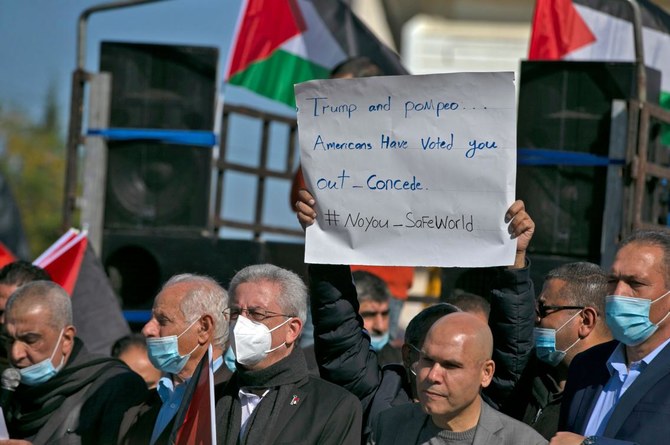 Trump and pompeo...
Americans Have Voted you
out_Concede.
#Noyou_SafeWorld